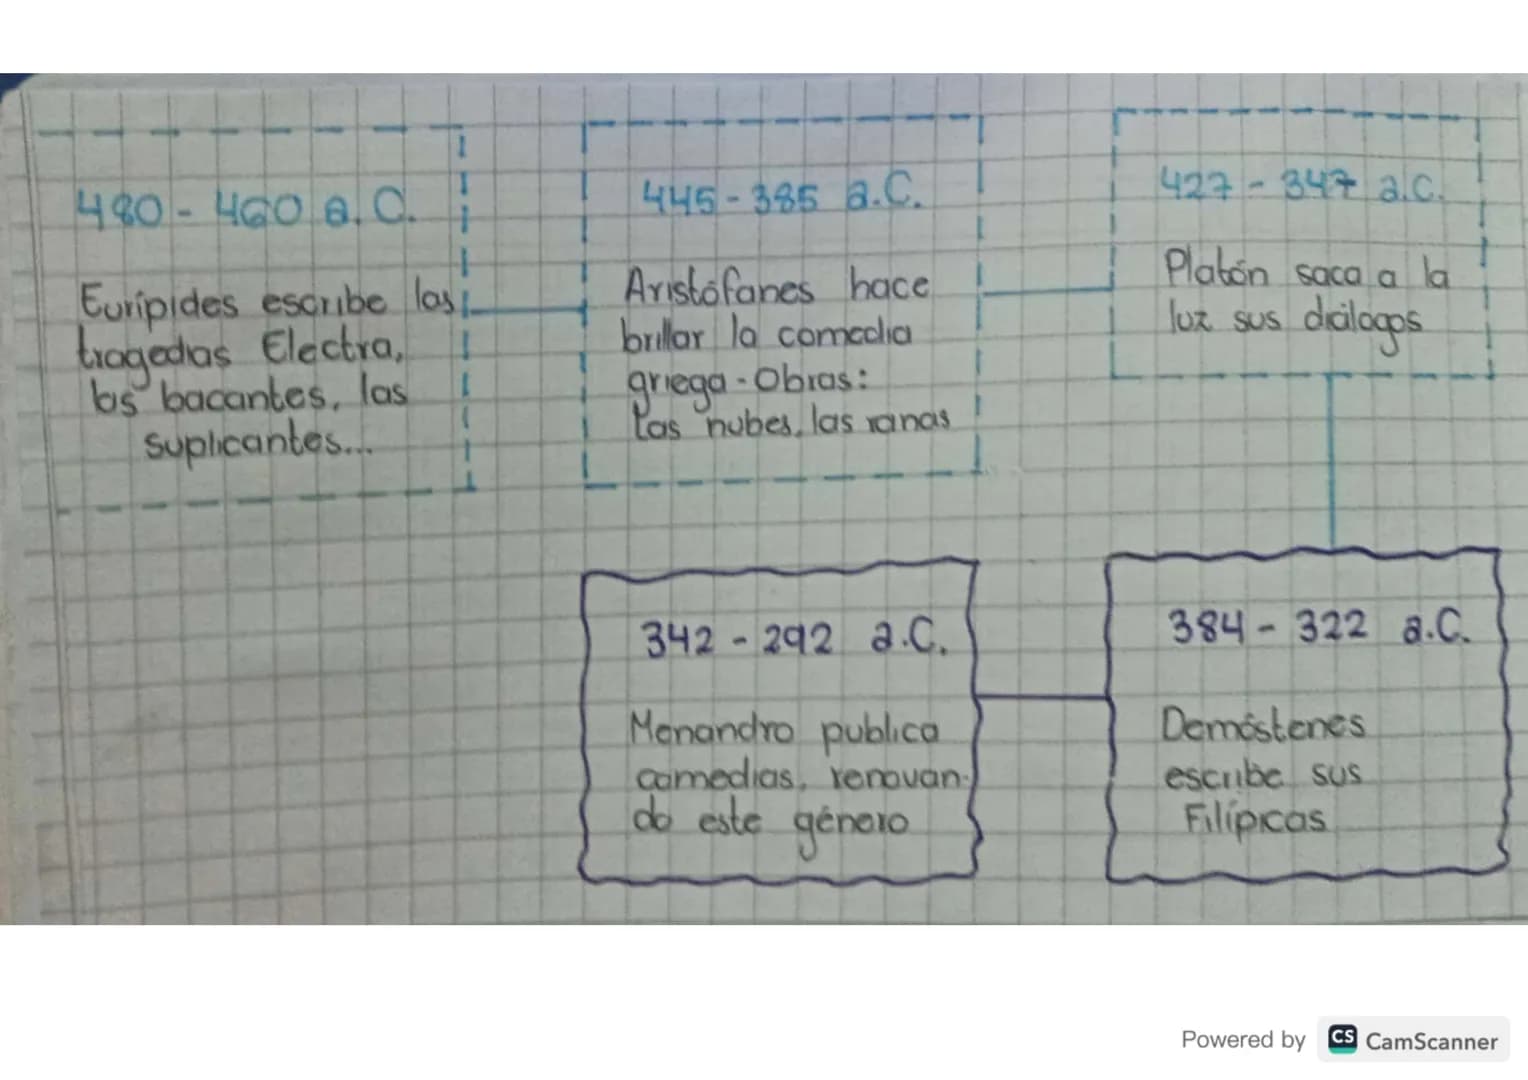 480 - 460 a.C.
Eurípides escribe las
tragedias Electra,
los bacantes, las
suplicantes...
445 - 385 a.C.
Aristófanes hace
brillar la comedia
griega - Obras:
Las nubes, las ranas
427 - 347 a.C.
Platón saca a la
luz sus diálogos
342 - 292 a.C.
Menandro publica
comedias, renovan-
do este género
384 - 322 a.C.
Demóstenes
escribe sus
Filípicas
Powered by CS CamScanner